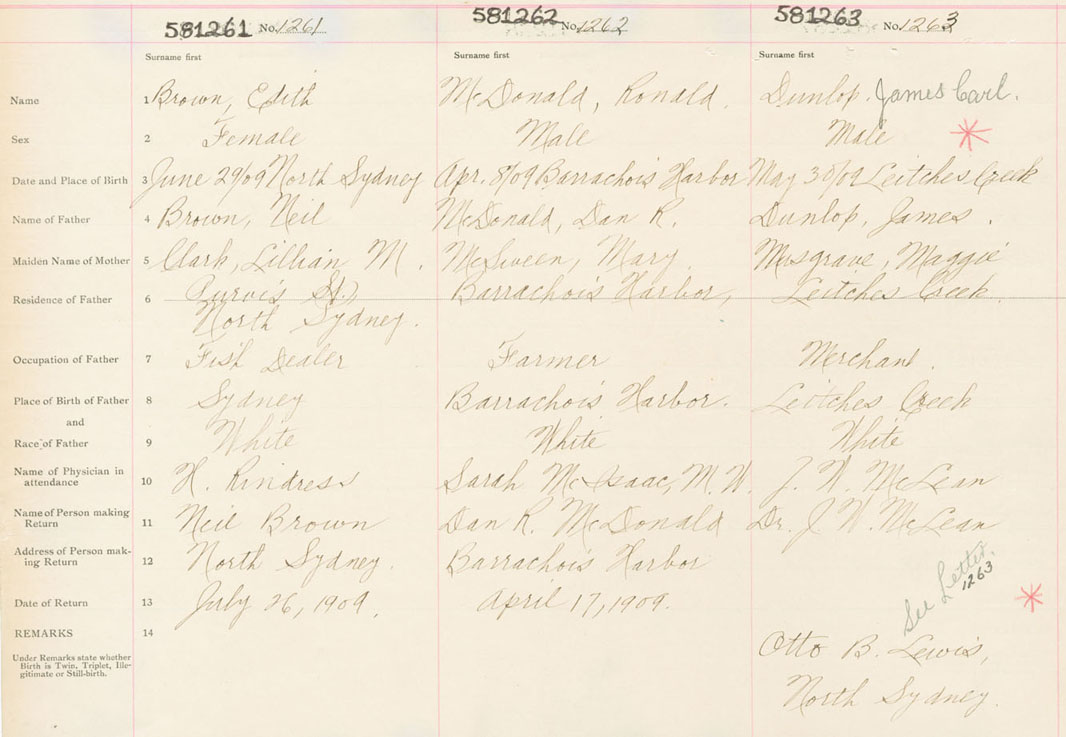 581261 No. 1261 581262 No. 1262 581263 No. 1263
Surname first Surname first Surname first
Name 1 Brown, Edith McDonald, Ronald. Dunlop. James Carl.
Sex 2 Female Male Male *
Date and Place of Birth 3 June 29/09 North Sydney Apr. 8/09 Barrachois Harbor May 30/09 Leitches Creek
Name of Father 4 Brown, Neil McDonald, Dan R. Dunlop, James.
Maiden Name of Mother 5 Clark, Lillian M. McSween, Mary Musgrave, Maggie
Residence of Father 6 Purvis St., Barrachois Harbor, Leitches Creek
North Sydney.
Occupation of Father 7 Fish Dealer Farmer Merchant.
Place of Birth of Father 8 Sydney Barrachois Harbor. Leitches Creek
and
Race of Father 9 White White White
Name of Physician in
attendance 10 H. Rindress Sarah McIsaac, M.W. J. W. McLean
Name of Person making
Return 11 Neil Brown Dan R. McDonald Dr. J W. McLean
Address of Person mak-
ing Return 12 North Sydney. Barrachois Harbor
See Letter.
1263
Date of Return 13 July 26, 1909. April 17, 1909. *
REMARKS 14
Under Remarks state whether
Birth is Twin, Triplet, Ille-
gitimate or Still-birth.
Otto B. Lewis,
North Sydney.